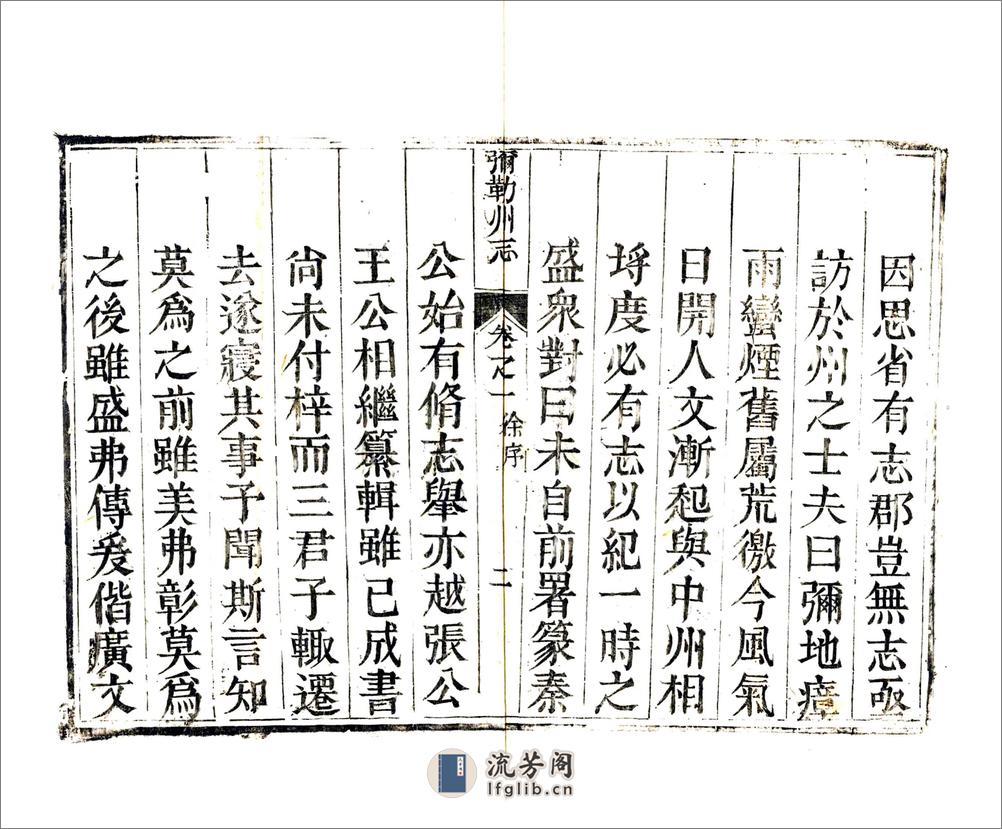 因思省有志郡豈無志亟
訪於州之士夫曰彌地瘴
雨蠻煙舊屬荒徼今風氣
日開人文漸起與中州相
埒度必有志以紀一時之
盛衆對曰未自前署篆秦
彌勒州志
卷之一
徐序
二
公始有脩志舉亦越張公
王公相繼纂輯雖已成書
尚未付梓而三君子輙遷
去遂寢其事予聞斯言知
莫爲之前雖美弗彰莫爲
之後雖盛弗傳爰偕廣文
流芳阁
lfglib.cn